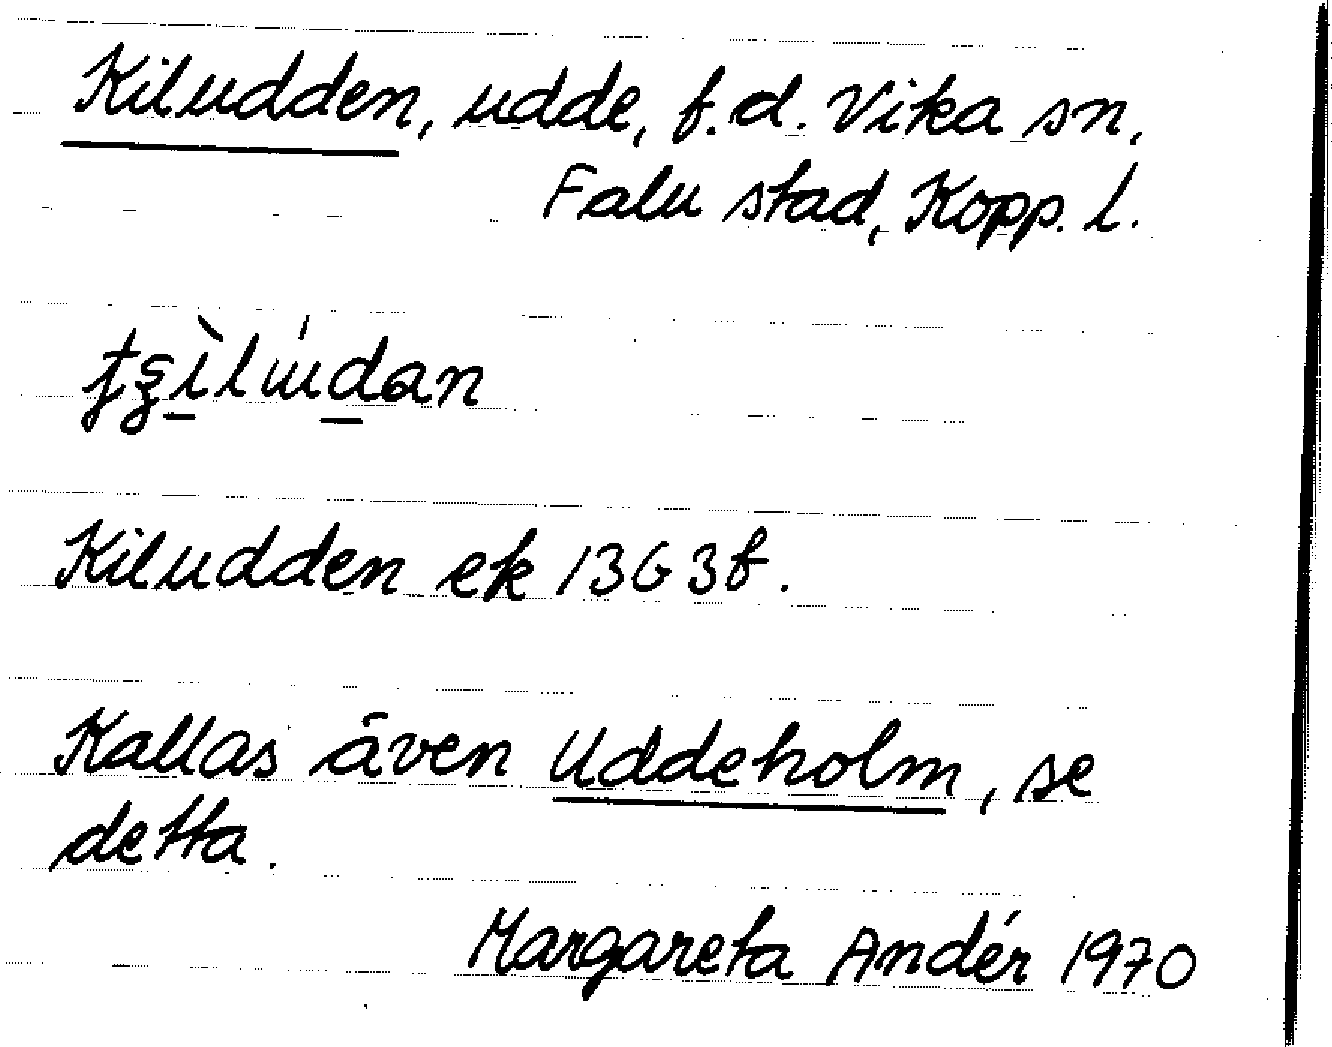 Kiludden, udde, f.d. Vika sn,
Falu stad, Kopp. l.
Kiludden ek 13G 3f.
Kallas även Uddeholm, se
detta.
Margareta Andér 1970